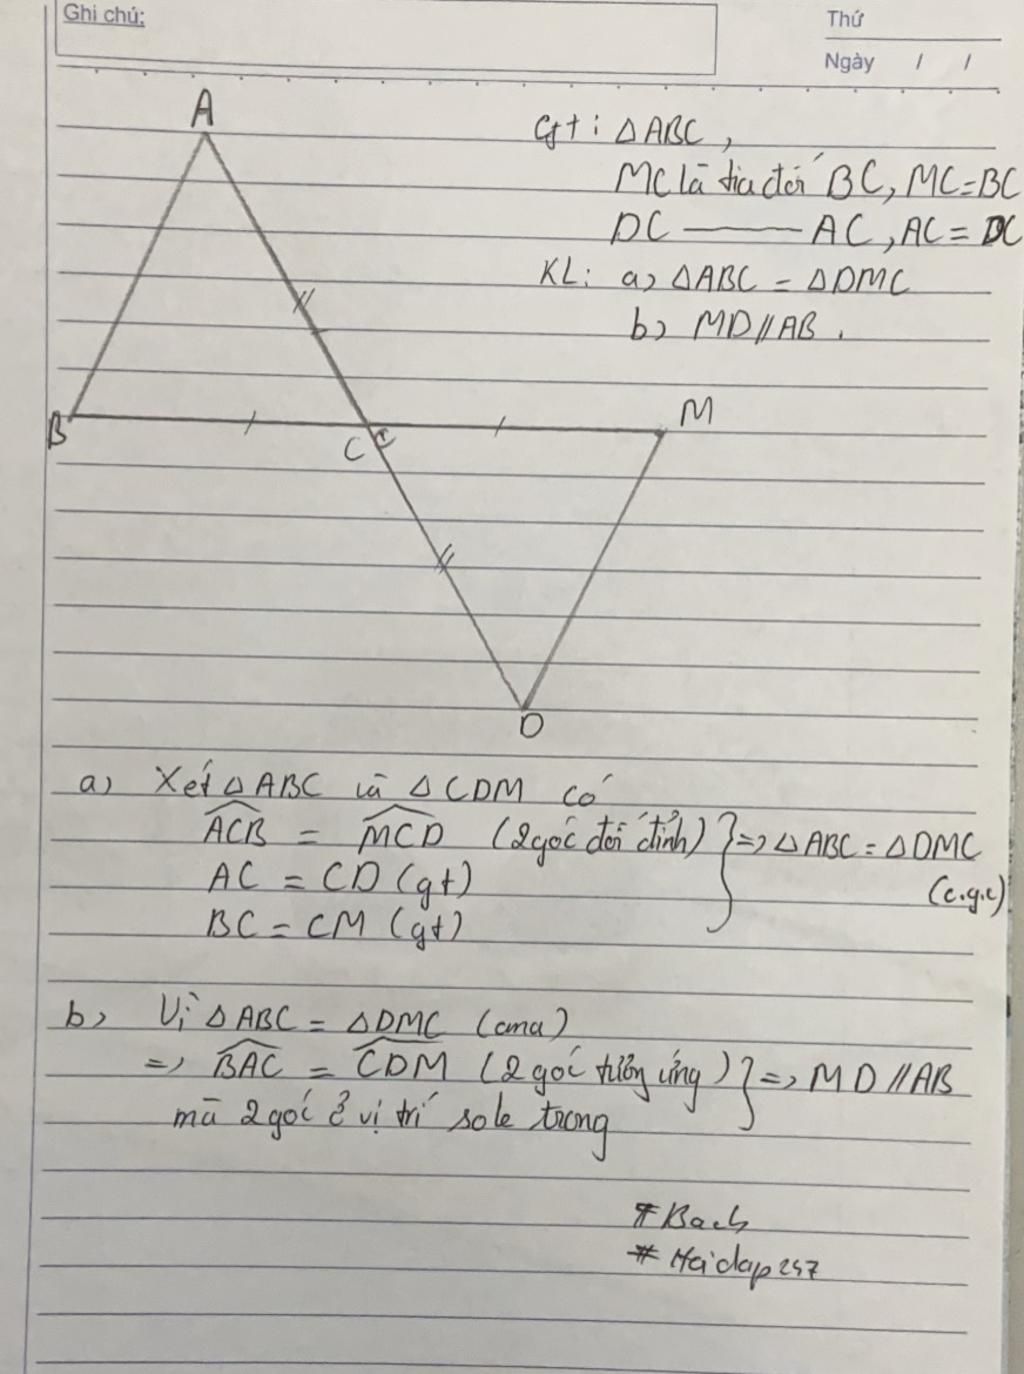 Ghi chú:
Thứ
Ngày / /
A
Gt: △ABC,
MC là tia đối BC, MC=BC
DC —— AC, AC = DC
KL: a, △ABC = △DMC
b, MD//AB.
B
C C
M
D
a, Xét △ABC và △CDM có
ACB = MCD (2 góc đối đỉnh) } => △ABC = △DMC
AC = CD (gt)
(c.g.c)
BC = CM (gt)
b, Vì △ABC = △DMC (cma)
=> BAC = CDM (2 góc tương ứng) } => MD//AB
mà 2 góc ở vị trí so le trong
#Bach
#Hoidap247